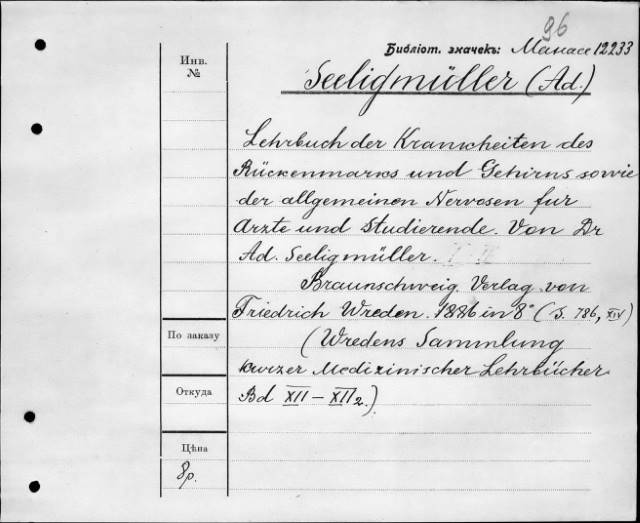 96
Библіот. значекъ: Манасе 12233
Инв.
№
Seeligmüller (Ad.)
Lehrbuch der Krankheiten des
Rückenmarks und Gehirns sowie
der allgemeinen Nervosen fur
Arzte und Studierende. Von Dr
Ad. Seeligmüller.
Braunschweig. Verlag von
Friedrich Wreden. 1886 in 8° (S. 786, XIV)
По заказу
(Wredens Sammlung
kurzer Medizinischer Lehrbücher
Откуда
Bd XII – XII2.)
Цѣна
8р.